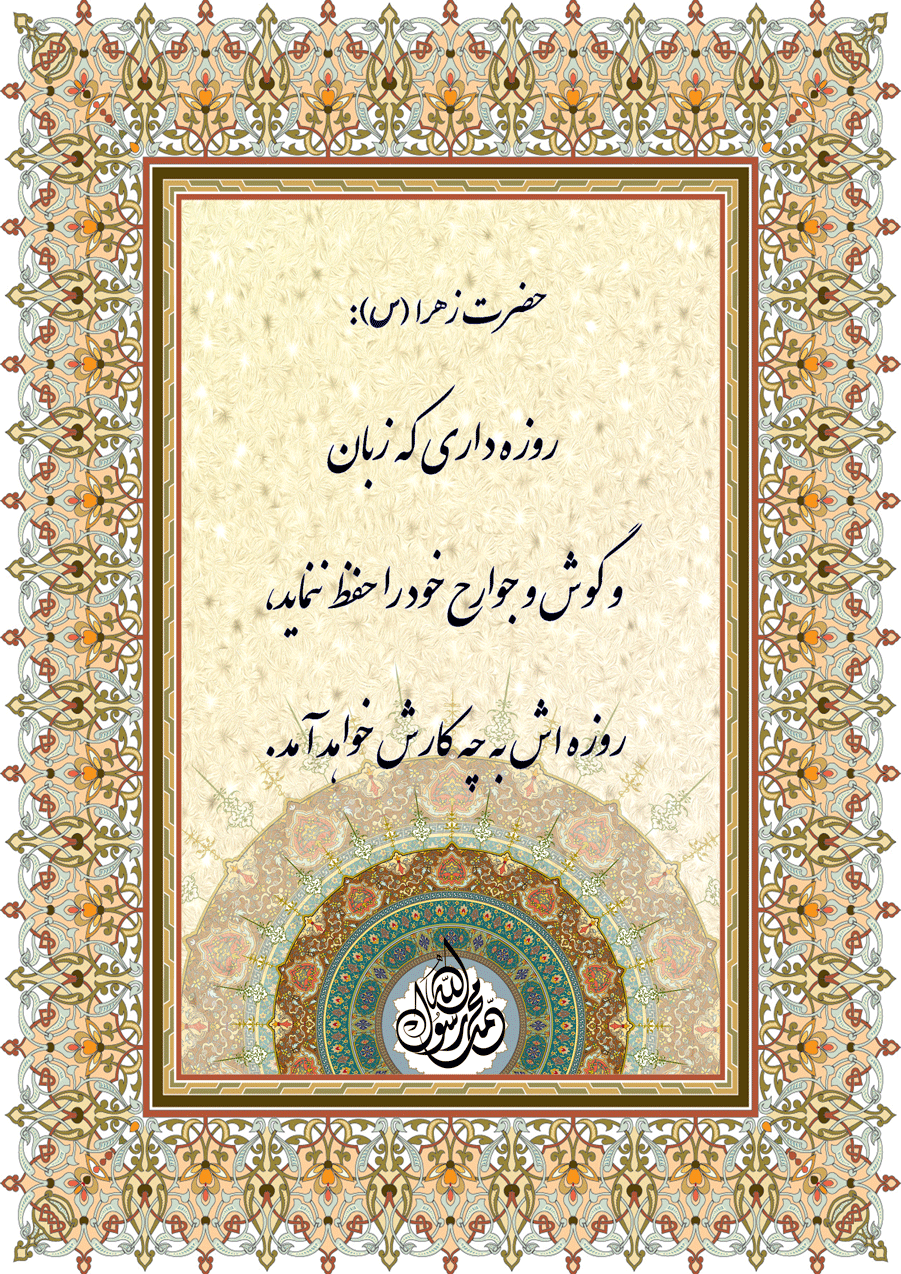 حضرت زهرا (س):
روزه داری که زبان
و گوش و جوارح خود را حفظ ننماید،
روزه اش به چه کارش خواهد آمد.
محمد رسول الله